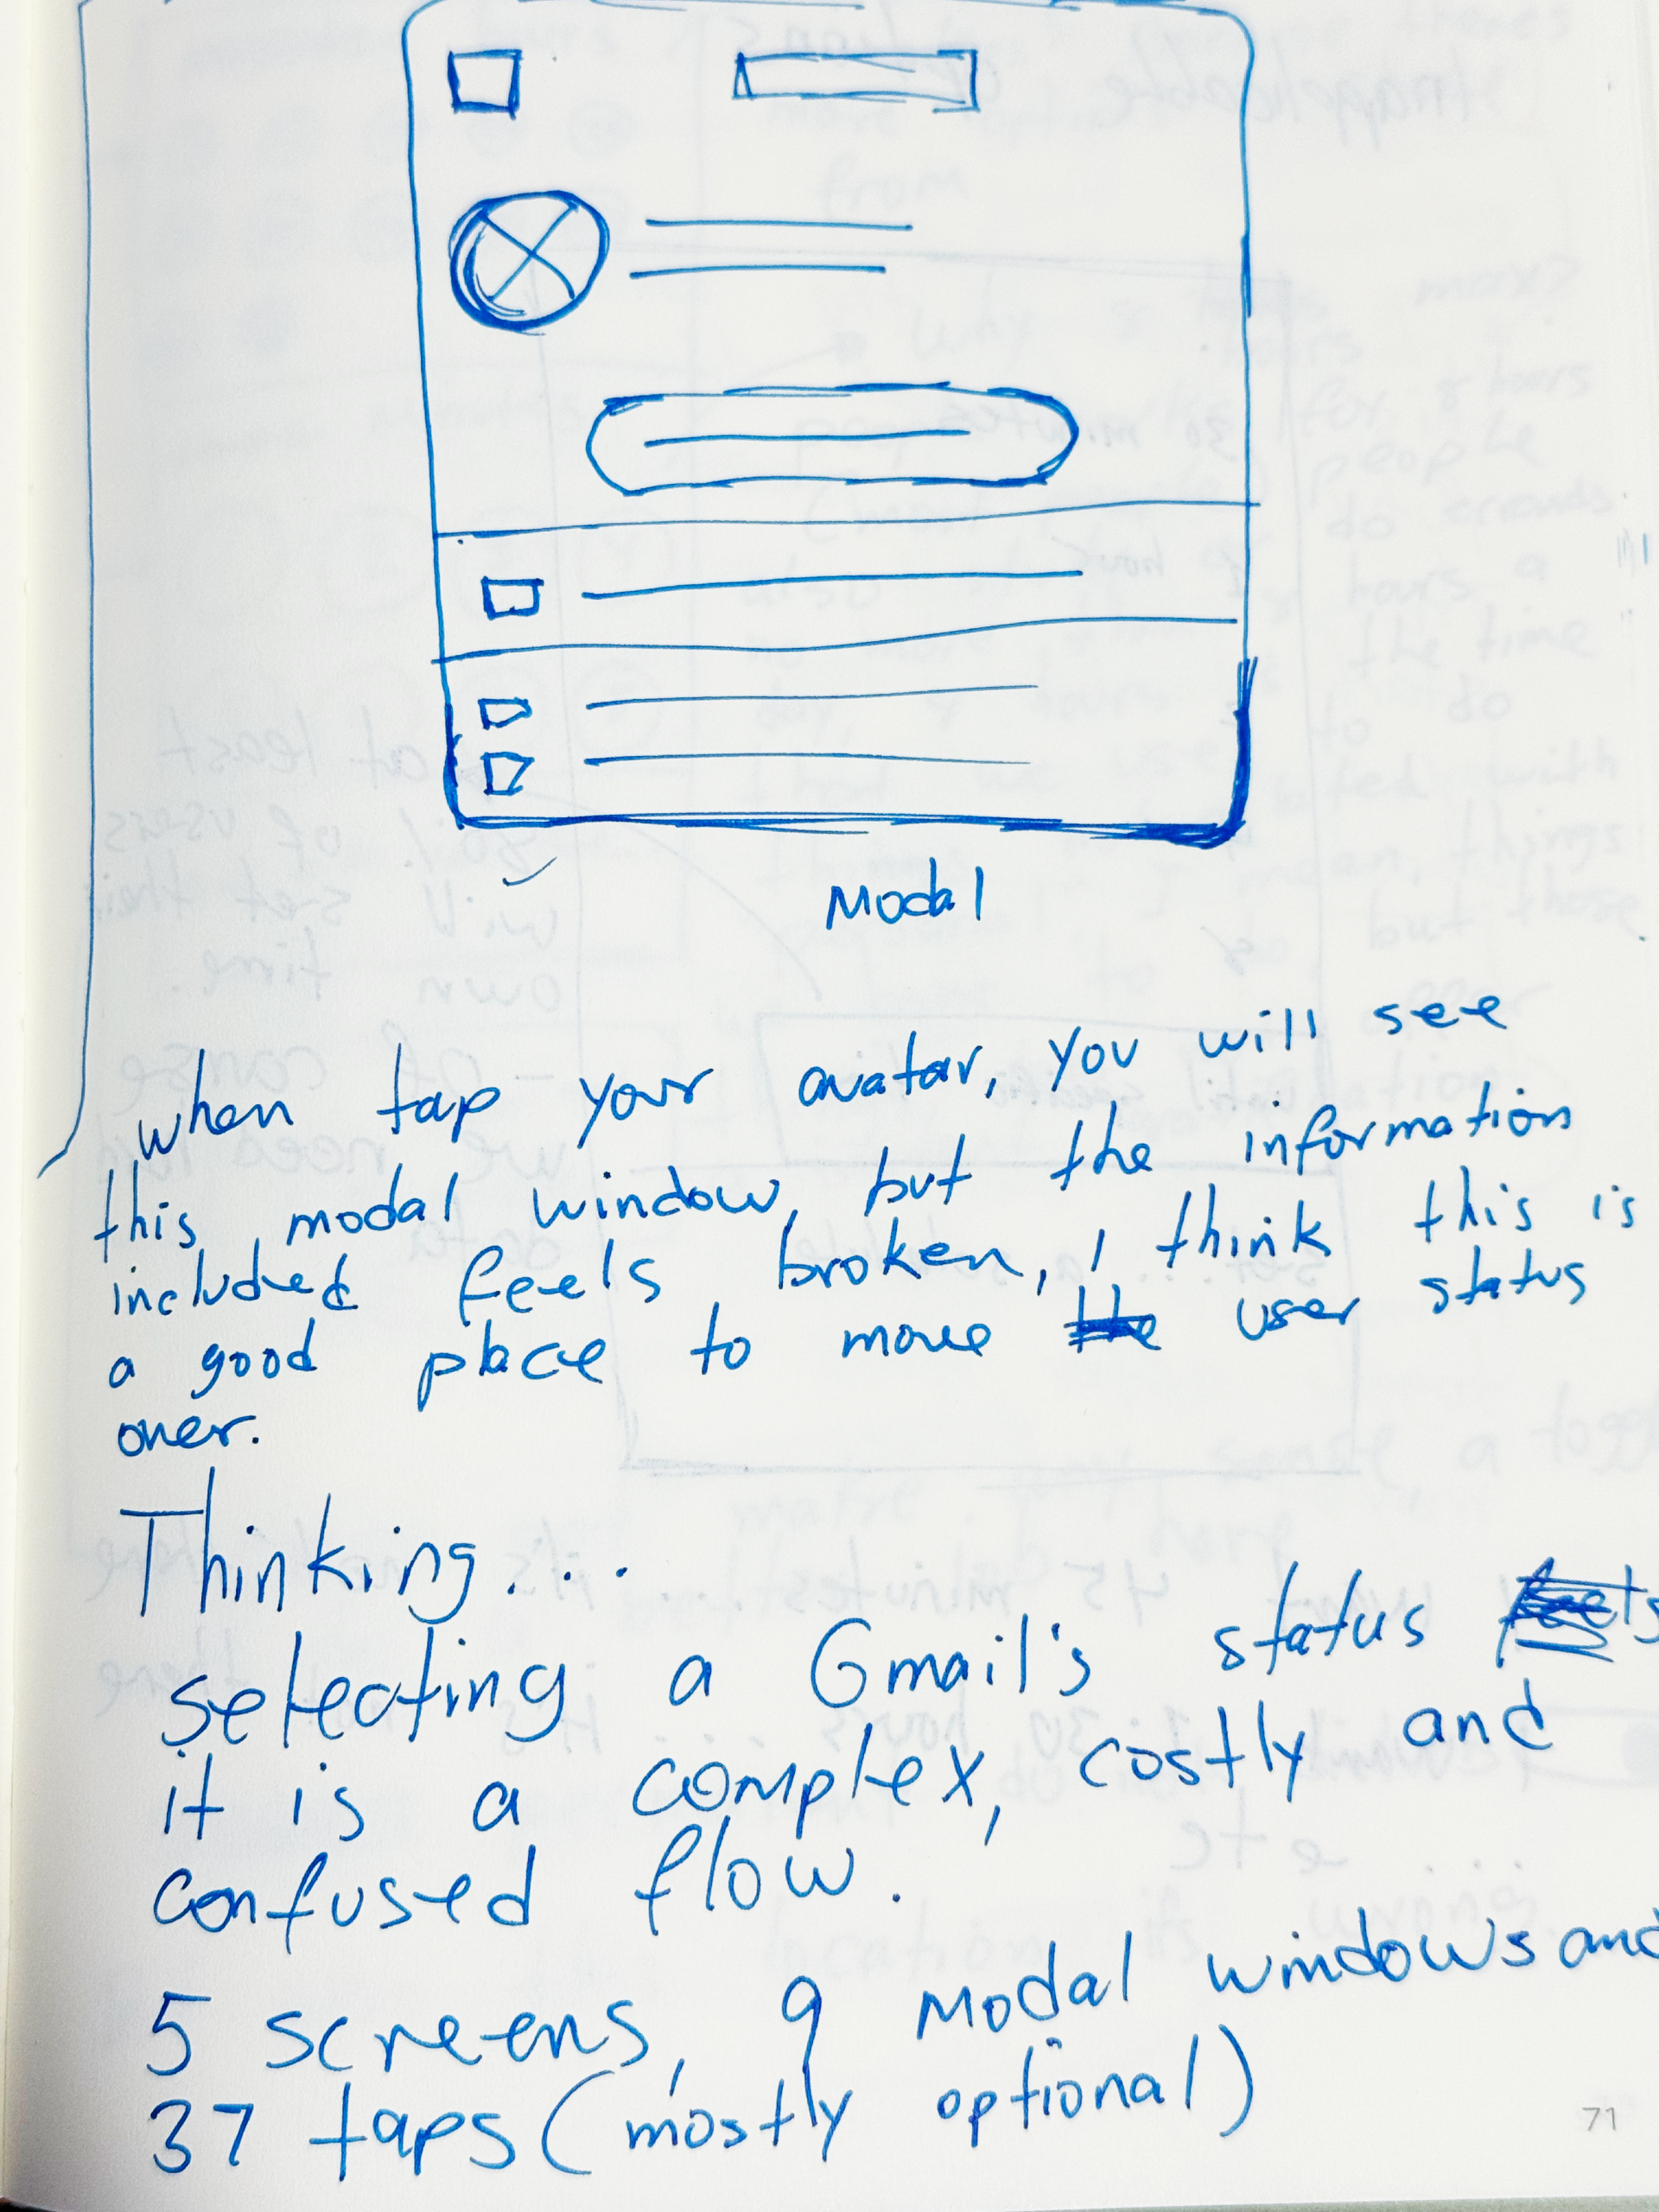 Modal
when tap your avatar, you will see
this modal window, but the information
included feels broken, I think this is
a good place to move user status
over.
Thinking...
selecting a Gmail's status
it is a complex, costly and
confused flow.
5 screens, 9 modal windows and
37 taps (mostly optional)
71